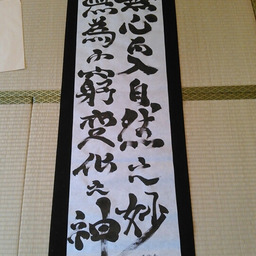 無心而入自然之妙
無為而窮変化之神